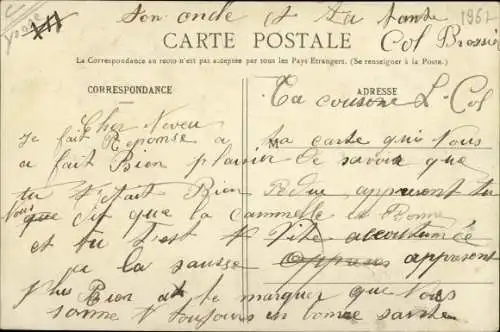 Ton oncle et Ta tante
1967
CARTE POSTALE
Col Brossier
La Correspondance au recto n'est pas acceptée par tous les Pays Etrangers. (Se renseigner à la Poste.)
CORRESPONDANCE
ADRESSE
Ta cousine L. Col
Cher Neveu
Je fait Reponse a la carte qui vous
a fait Bien plaisir de savoir que
tu t'etait Bien apparent tu
Nous dit que la Cammelle et Bonne
et tu t'est Vite accoutumée
a la sausse apparent
plus Bien a te marquer que Nous
somme toujours en bonne sante